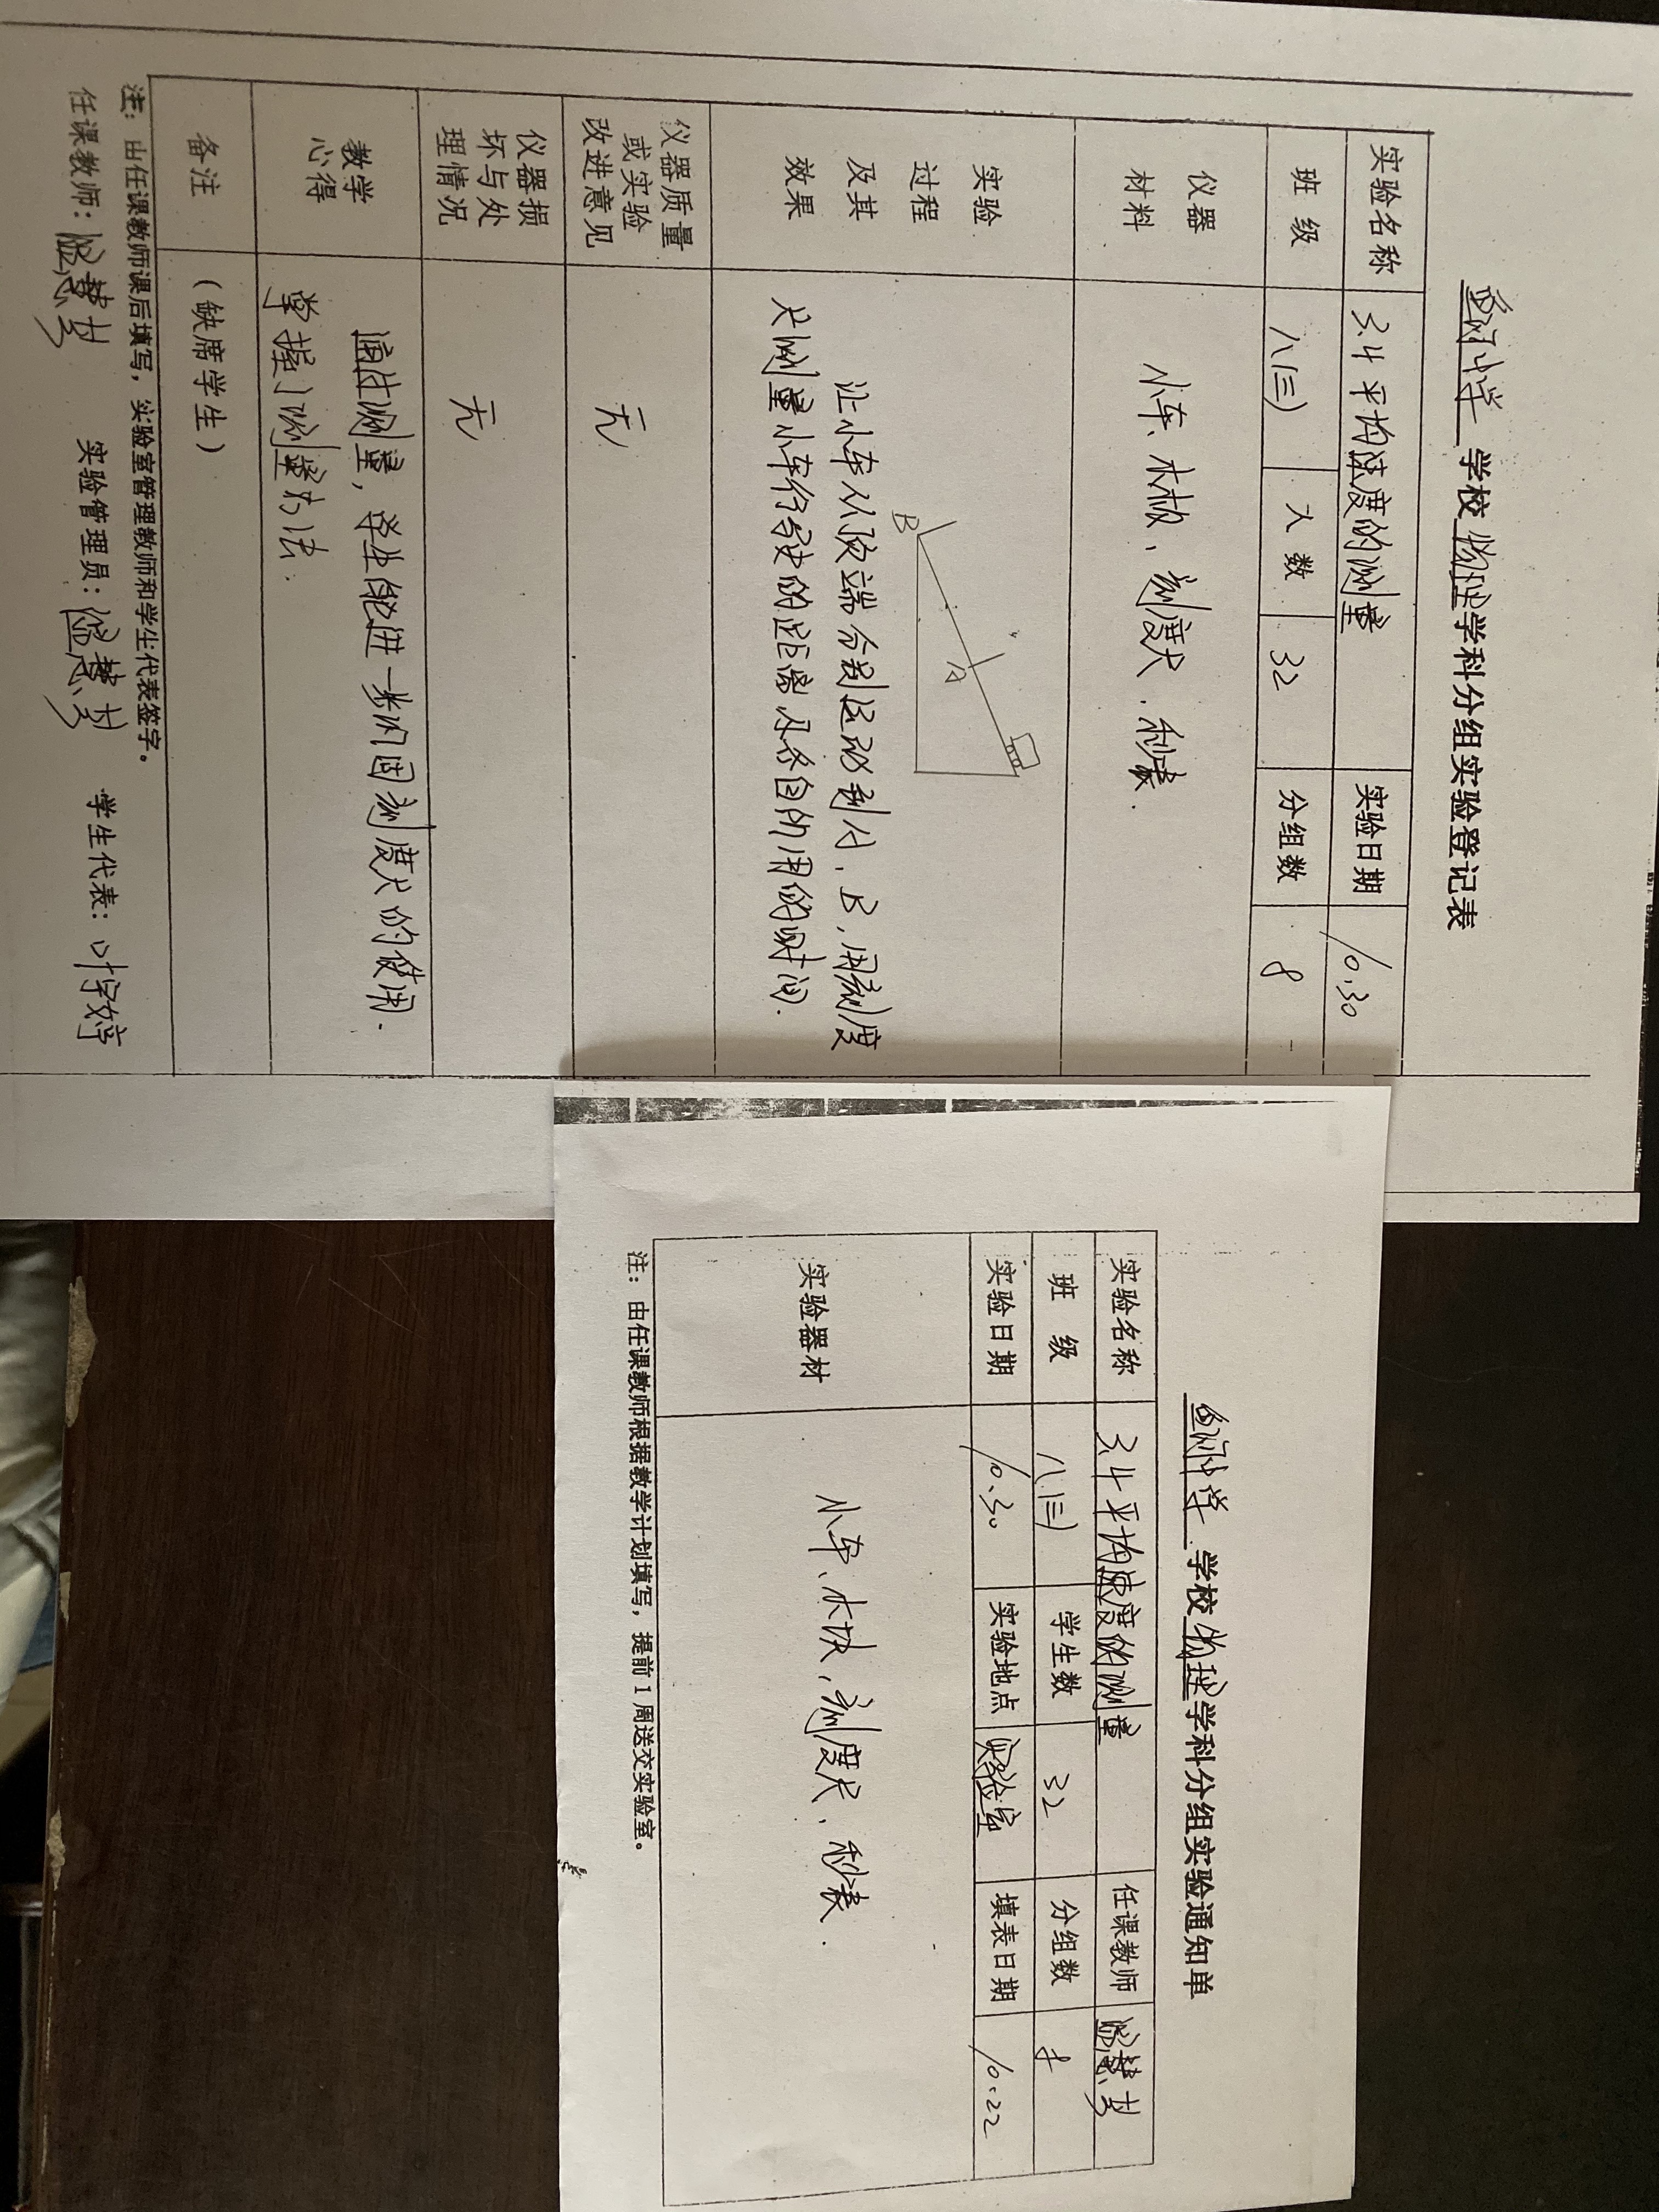 学校物理学科分组实验登记表
实验名称 3.4平均速度的测量 实验日期 10.30
班 级 八(三) 人 数 32 分组数 8
仪器
材料
小车、木板、刻度尺、秒表.
实验
过程
及其
效果
B
A
让小车从顶端分别运动到A、B,用刻度
尺测量小车行驶的距离及各自所用的时间.
仪器质量
或实验
改进意见
无
仪器损
坏与处
理情况
无
教学
心得
通过测量,学生能进一步巩固刻度尺的使用.
掌握了测量方法.
备注 (缺席学生)
注:由任课教师课后填写,实验室管理教师和学生代表签字。
任课教师: 实验管理员: 学生代表:叶宇婷
学校物理学科分组实验通知单
实验名称 3.4平均速度的测量 任课教师
班 级 八(三) 学生数 32 分组数 8
实验日期 10.30 实验地点 实验室 填表日期 10.22
实验器材 小车、木块、刻度尺、秒表.
注:由任课教师根据教学计划填写,提前1周送交实验室。